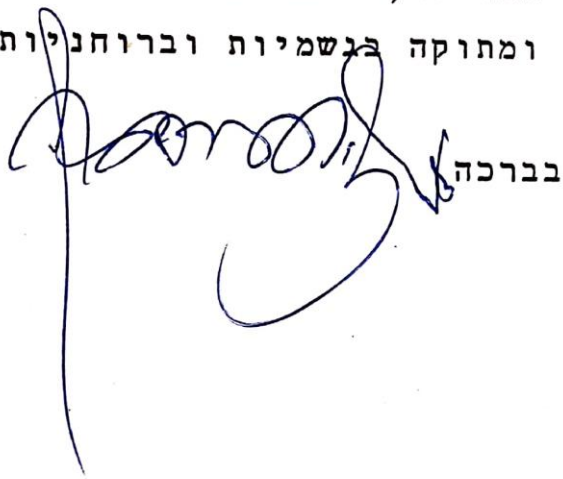 ומתוקה בגשמיות וברוחניות
בברכה